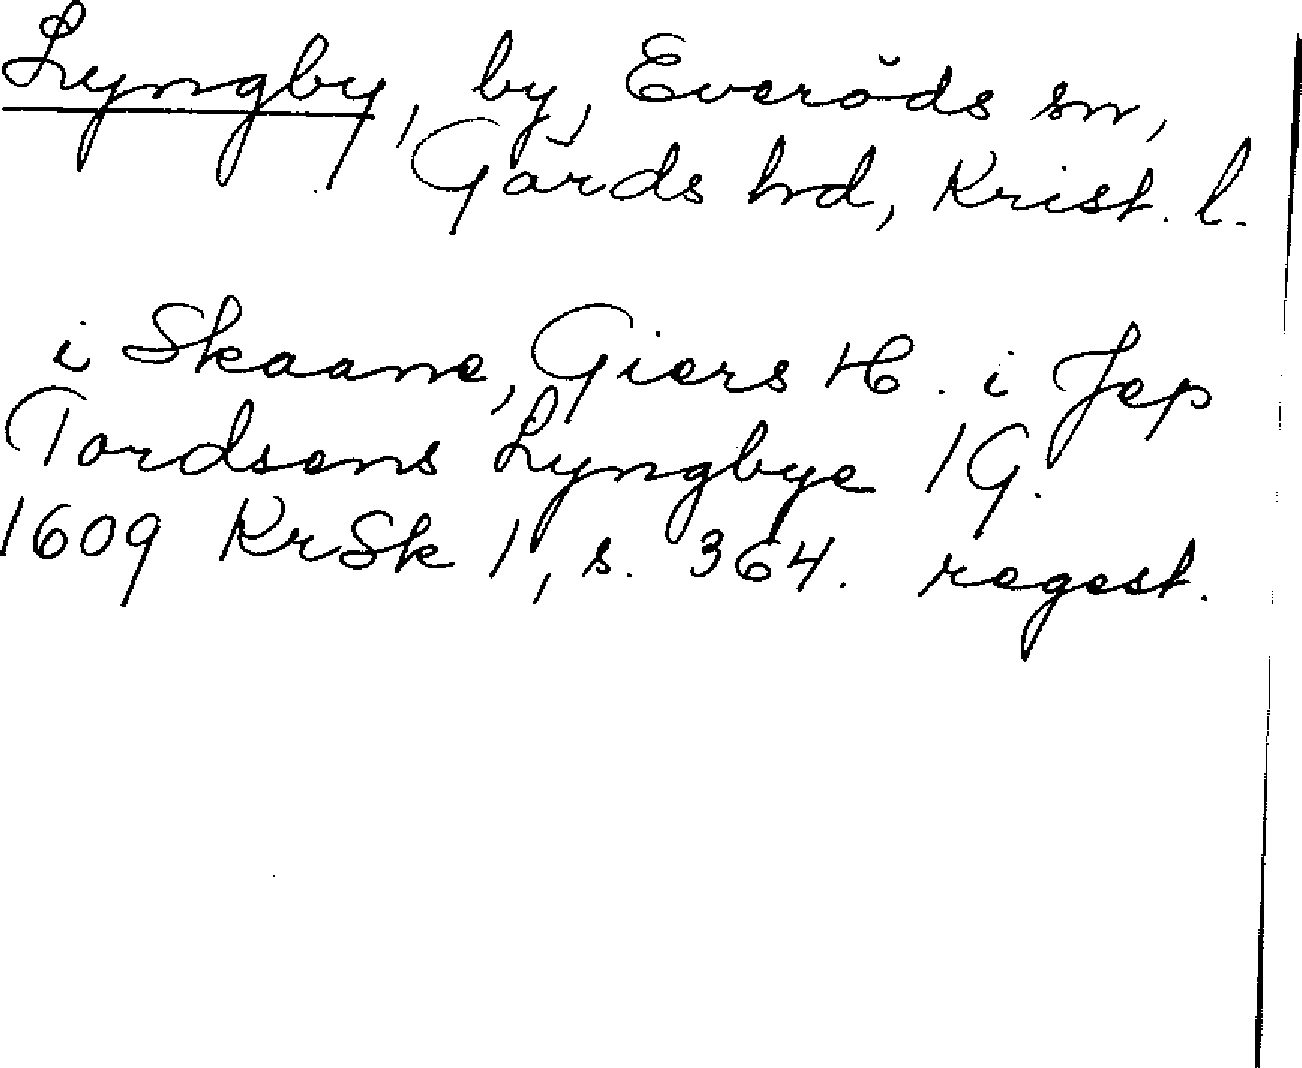 Lyngby, by, Everöds sn,
Gärds hd, Krist. l.
i Skaane, Giers H. i Jep
Tordsens Lyngbye 1 G.
1609 KrSk 1, s. 364. regest.